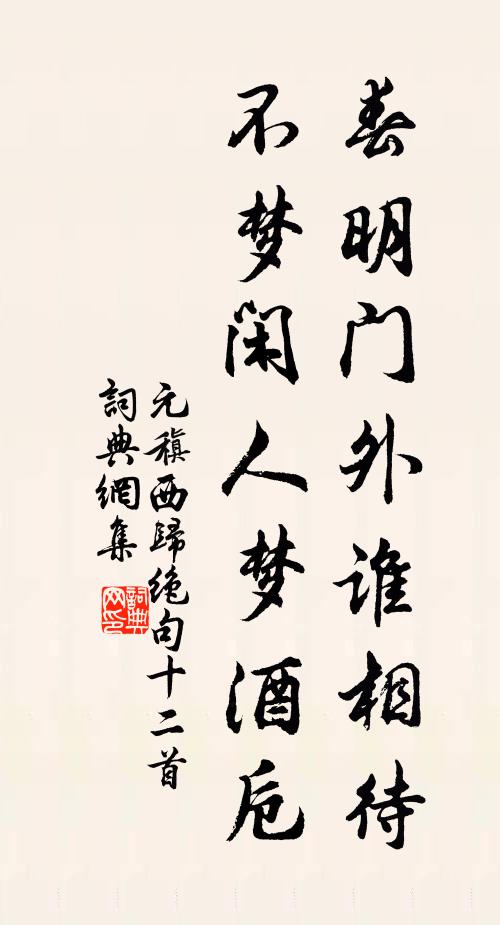 春明门外谁相待
不梦闲人梦酒卮
元稹西歸绝句十二首
詞典網集
詞典网印